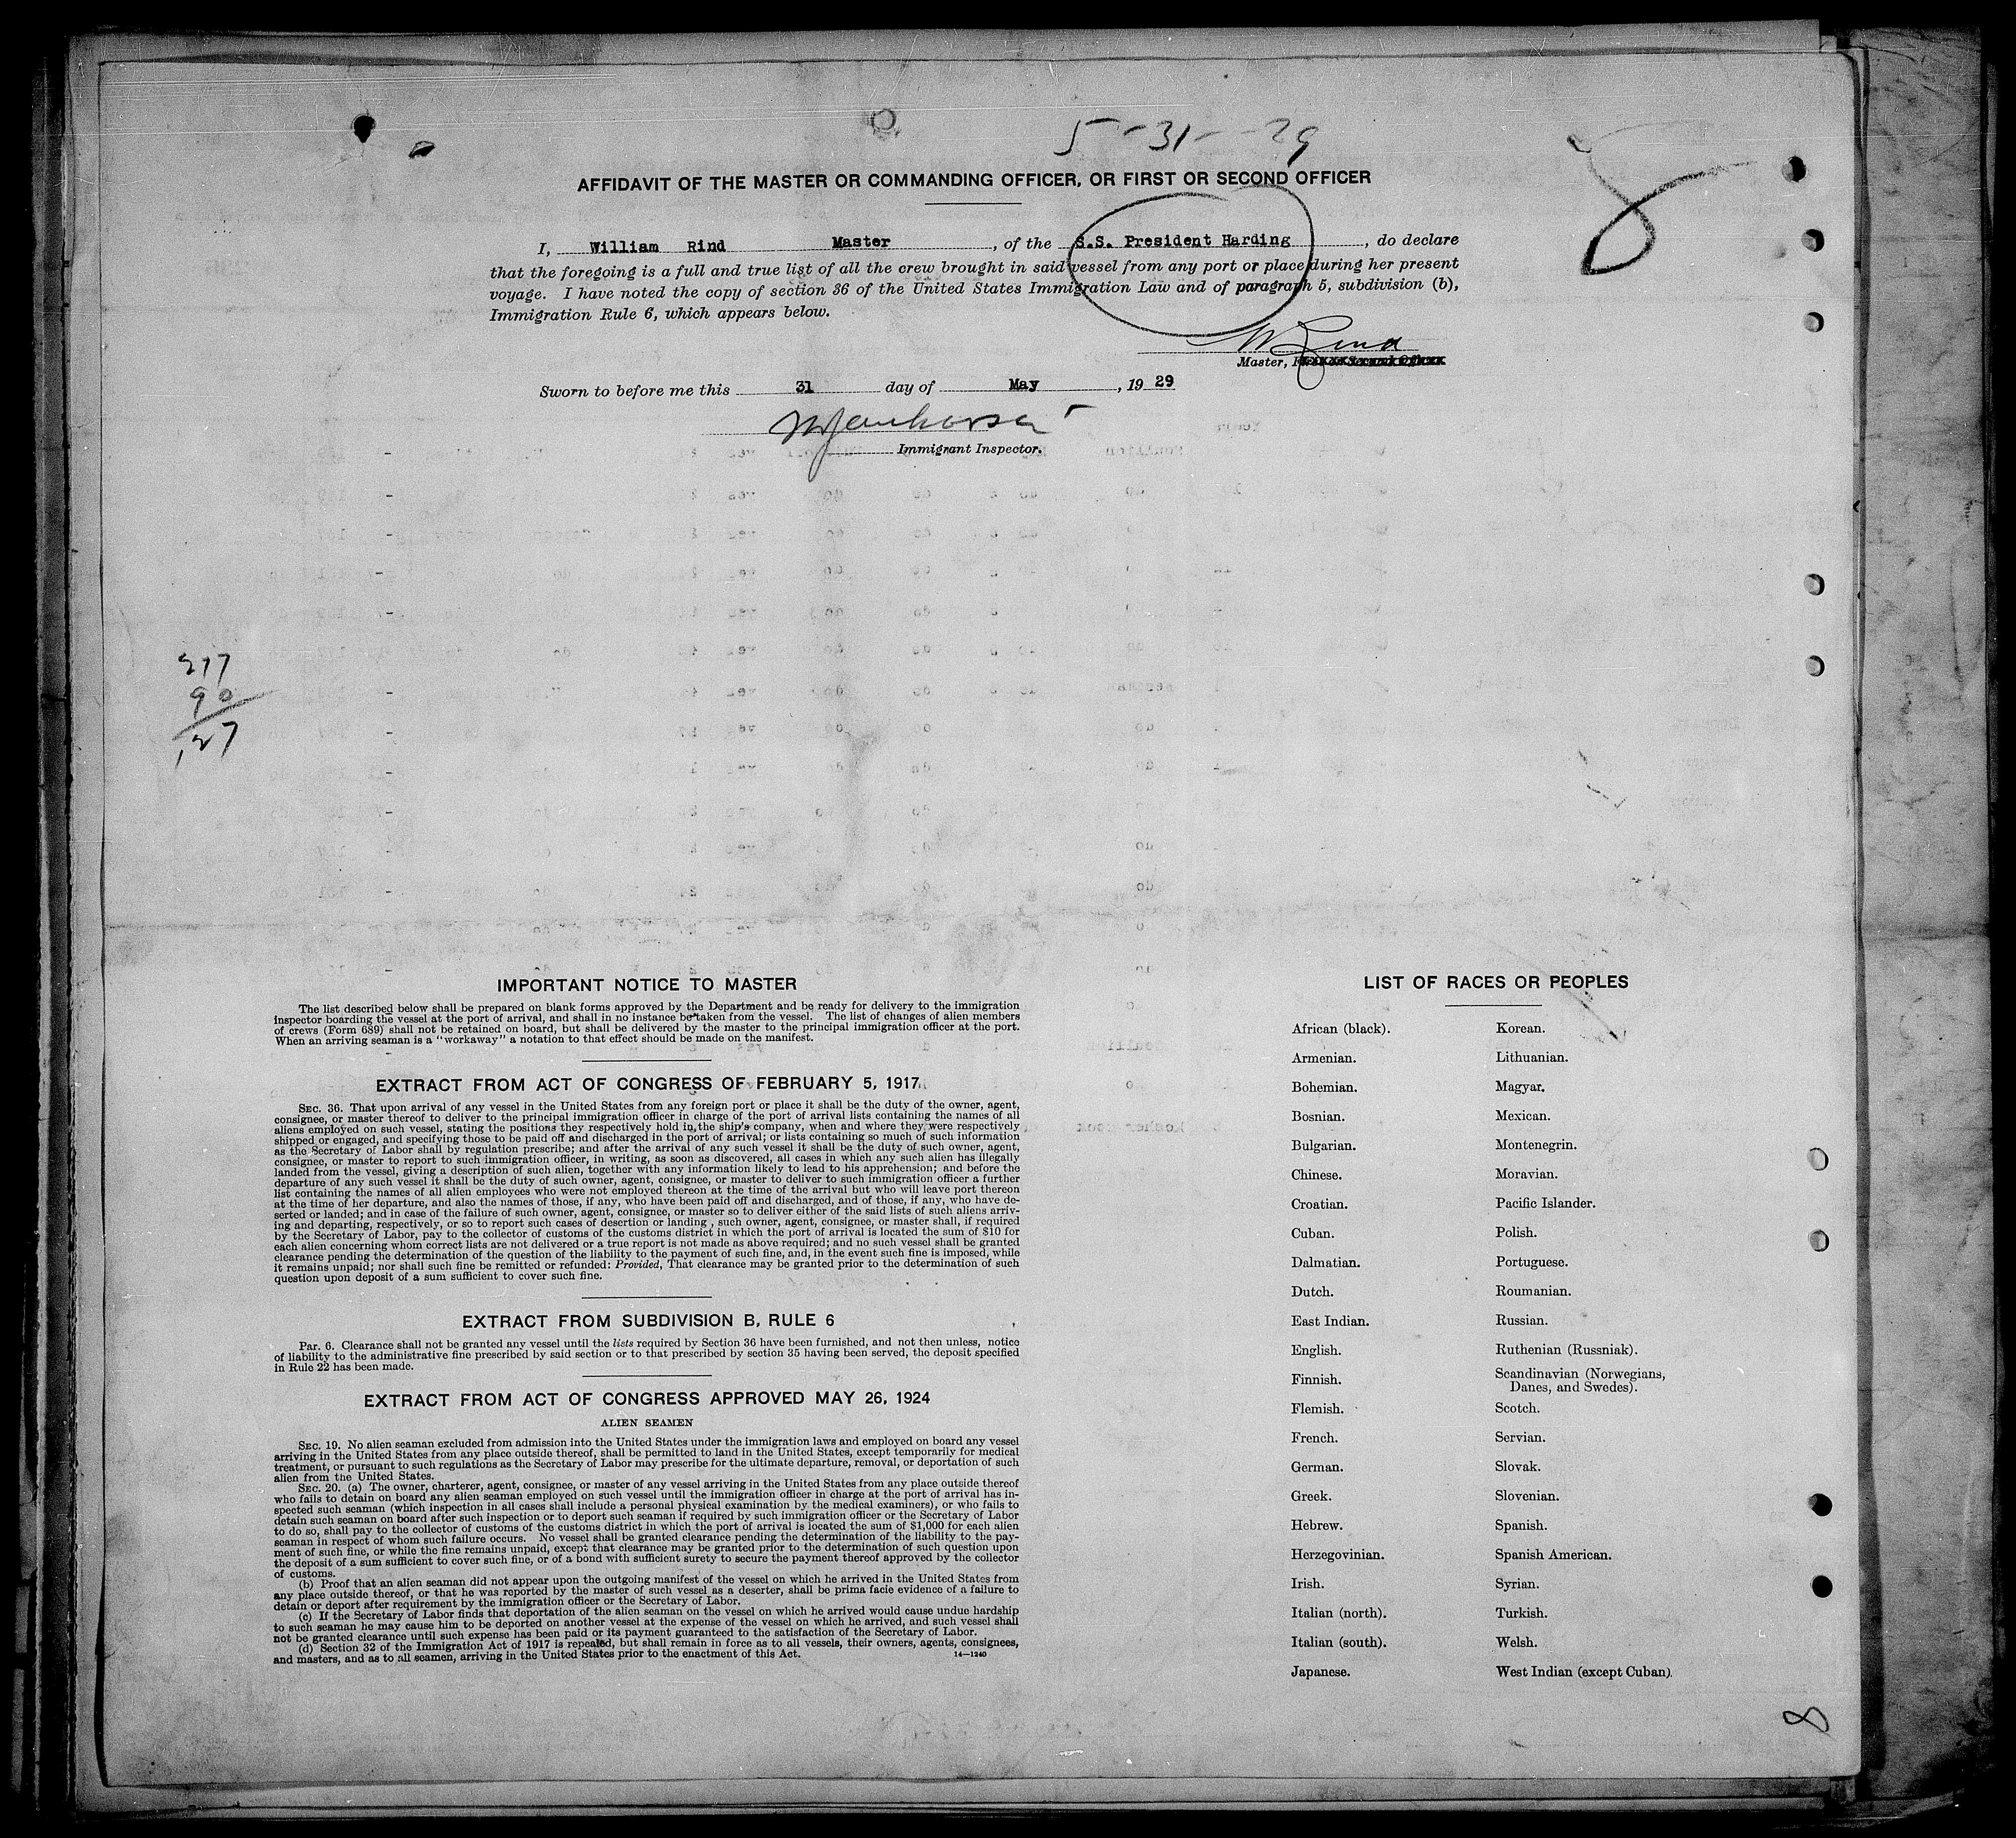 5-31-29
8
AFFIDAVIT OF THE MASTER OR COMMANDING OFFICER, OR FIRST OR SECOND OFFICER
I, William Rind Master, of the S.S. President Harding, do declare
that the foregoing is a full and true list of all the crew brought in said vessel from any port or place during her present
voyage. I have noted the copy of section 36 of the United States Immigration Law and of paragraph 5, subdivision (b),
Immigration Rule 6, which appears below.
W Rind
Master,
Sworn to before me this 31 day of May, 19 29
Immigrant Inspector.
217
90
127
IMPORTANT NOTICE TO MASTER
The list described below shall be prepared on blank forms approved by the Department and be ready for delivery to the immigration
inspector boarding the vessel at the port of arrival, and shall in no instance be taken from the vessel. The list of changes of alien members
of crews (Form 689) shall not be retained on board, but shall be delivered by the master to the principal immigration officer at the port.
When an arriving seaman is a "workaway" a notation to that effect should be made on the manifest.
EXTRACT FROM ACT OF CONGRESS OF FEBRUARY 5, 1917
SEC. 36. That upon arrival of any vessel in the United States from any foreign port or place it shall be the duty of the owner, agent,
consignee, or master thereof to deliver to the principal immigration officer in charge of the port of arrival lists containing the names of all
aliens employed on such vessel, stating the positions they respectively hold in the ship's company, when and where they were respectively
shipped or engaged, and specifying those to be paid off and discharged in the port of arrival; or lists containing so much of such information
as the Secretary of Labor shall by regulation prescribe; and after the arrival of any such vessel it shall be the duty of such owner, agent,
consignee, or master to report to such immigration officer, in writing, as soon as discovered, all cases in which any such alien has illegally
landed from the vessel, giving a description of such alien, together with any information likely to lead to his apprehension; and before the
departure of any such vessel it shall be the duty of such owner, agent, consignee, or master to deliver to such immigration officer a further
list containing the names of all alien employees who were not employed thereon at the time of the arrival but who will leave port thereon
at the time of her departure, and also the names of those, if any, who have been paid off and discharged, and of those, if any, who have de-
serted or landed; and in case of the failure of such owner, agent, consignee, or master so to deliver either of the said lists of such aliens arriv-
ing and departing, respectively, or so to report such cases of desertion or landing, such owner, agent, consignee, or master shall, if required
by the Secretary of Labor, pay to the collector of customs of the customs district in which the port of arrival is located the sum of $10 for
each alien concerning whom correct lists are not delivered or a true report is not made as above required; and no such vessel shall be granted
clearance pending the determination of the question of the liability to the payment of such fine, and, in the event such fine is imposed, while
it remains unpaid; nor shall such fine be remitted or refunded: Provided, That clearance may be granted prior to the determination of such
question upon deposit of a sum sufficient to cover such fine.
EXTRACT FROM SUBDIVISION B, RULE 6
Par. 6. Clearance shall not be granted any vessel until the lists required by Section 36 have been furnished, and not then unless, notice
of liability to the administrative fine prescribed by said section or to that prescribed by section 35 having been served, the deposit specified
in Rule 22 has been made.
EXTRACT FROM ACT OF CONGRESS APPROVED MAY 26, 1924
ALIEN SEAMEN
SEC. 19. No alien seaman excluded from admission into the United States under the immigration laws and employed on board any vessel
arriving in the United States from any place outside thereof, shall be permitted to land in the United States, except temporarily for medical
treatment, or pursuant to such regulations as the Secretary of Labor may prescribe for the ultimate departure, removal, or deportation of such
alien from the United States.
SEC. 20. (a) The owner, charterer, agent, consignee, or master of any vessel arriving in the United States from any place outside thereof
who fails to detain on board any alien seaman employed on such vessel until the immigration officer in charge at the port of arrival has in-
spected such seaman (which inspection in all cases shall include a personal physical examination by the medical examiners), or who fails to
detain such seaman on board after such inspection or to deport such seaman if required by such immigration officer or the Secretary of Labor
to do so, shall pay to the collector of customs of the customs district in which the port of arrival is located the sum of $1,000 for each alien
seaman in respect of whom such failure occurs. No vessel shall be granted clearance pending the determination of the liability to the pay-
ment of such fine, or while the fine remains unpaid, except that clearance may be granted prior to the determination of such question upon
the deposit of a sum sufficient to cover such fine, or of a bond with sufficient surety to secure the payment thereof approved by the collector
of customs.
(b) Proof that an alien seaman did not appear upon the outgoing manifest of the vessel on which he arrived in the United States from
any place outside thereof, or that he was reported by the master of such vessel as a deserter, shall be prima facie evidence of a failure to
detain or deport after requirement by the immigration officer or the Secretary of Labor.
(c) If the Secretary of Labor finds that deportation of the alien seaman on the vessel on which he arrived would cause undue hardship
to such seaman he may cause him to be deported on another vessel at the expense of the vessel on which he arrived, and such vessel shall
not be granted clearance until such expense has been paid or its payment guaranteed to the satisfaction of the Secretary of Labor.
(d) Section 32 of the Immigration Act of 1917 is repealed, but shall remain in force as to all vessels, their owners, agents, consignees,
and masters, and as to all seamen, arriving in the United States prior to the enactment of this Act.
14—1240
LIST OF RACES OR PEOPLES
African (black).
Armenian.
Bohemian.
Bosnian.
Bulgarian.
Chinese.
Croatian.
Cuban.
Dalmatian.
Dutch.
East Indian.
English.
Finnish.
Flemish.
French.
German.
Greek.
Hebrew.
Herzegovinian.
Irish.
Italian (north).
Italian (south).
Japanese.
Korean.
Lithuanian.
Magyar.
Mexican.
Montenegrin.
Moravian.
Pacific Islander.
Polish.
Portuguese.
Roumanian.
Russian.
Ruthenian (Russniak).
Scandinavian (Norwegians,
Danes, and Swedes).
Scotch.
Servian.
Slovak.
Slovenian.
Spanish.
Spanish American.
Syrian.
Turkish.
Welsh.
West Indian (except Cuban).
8